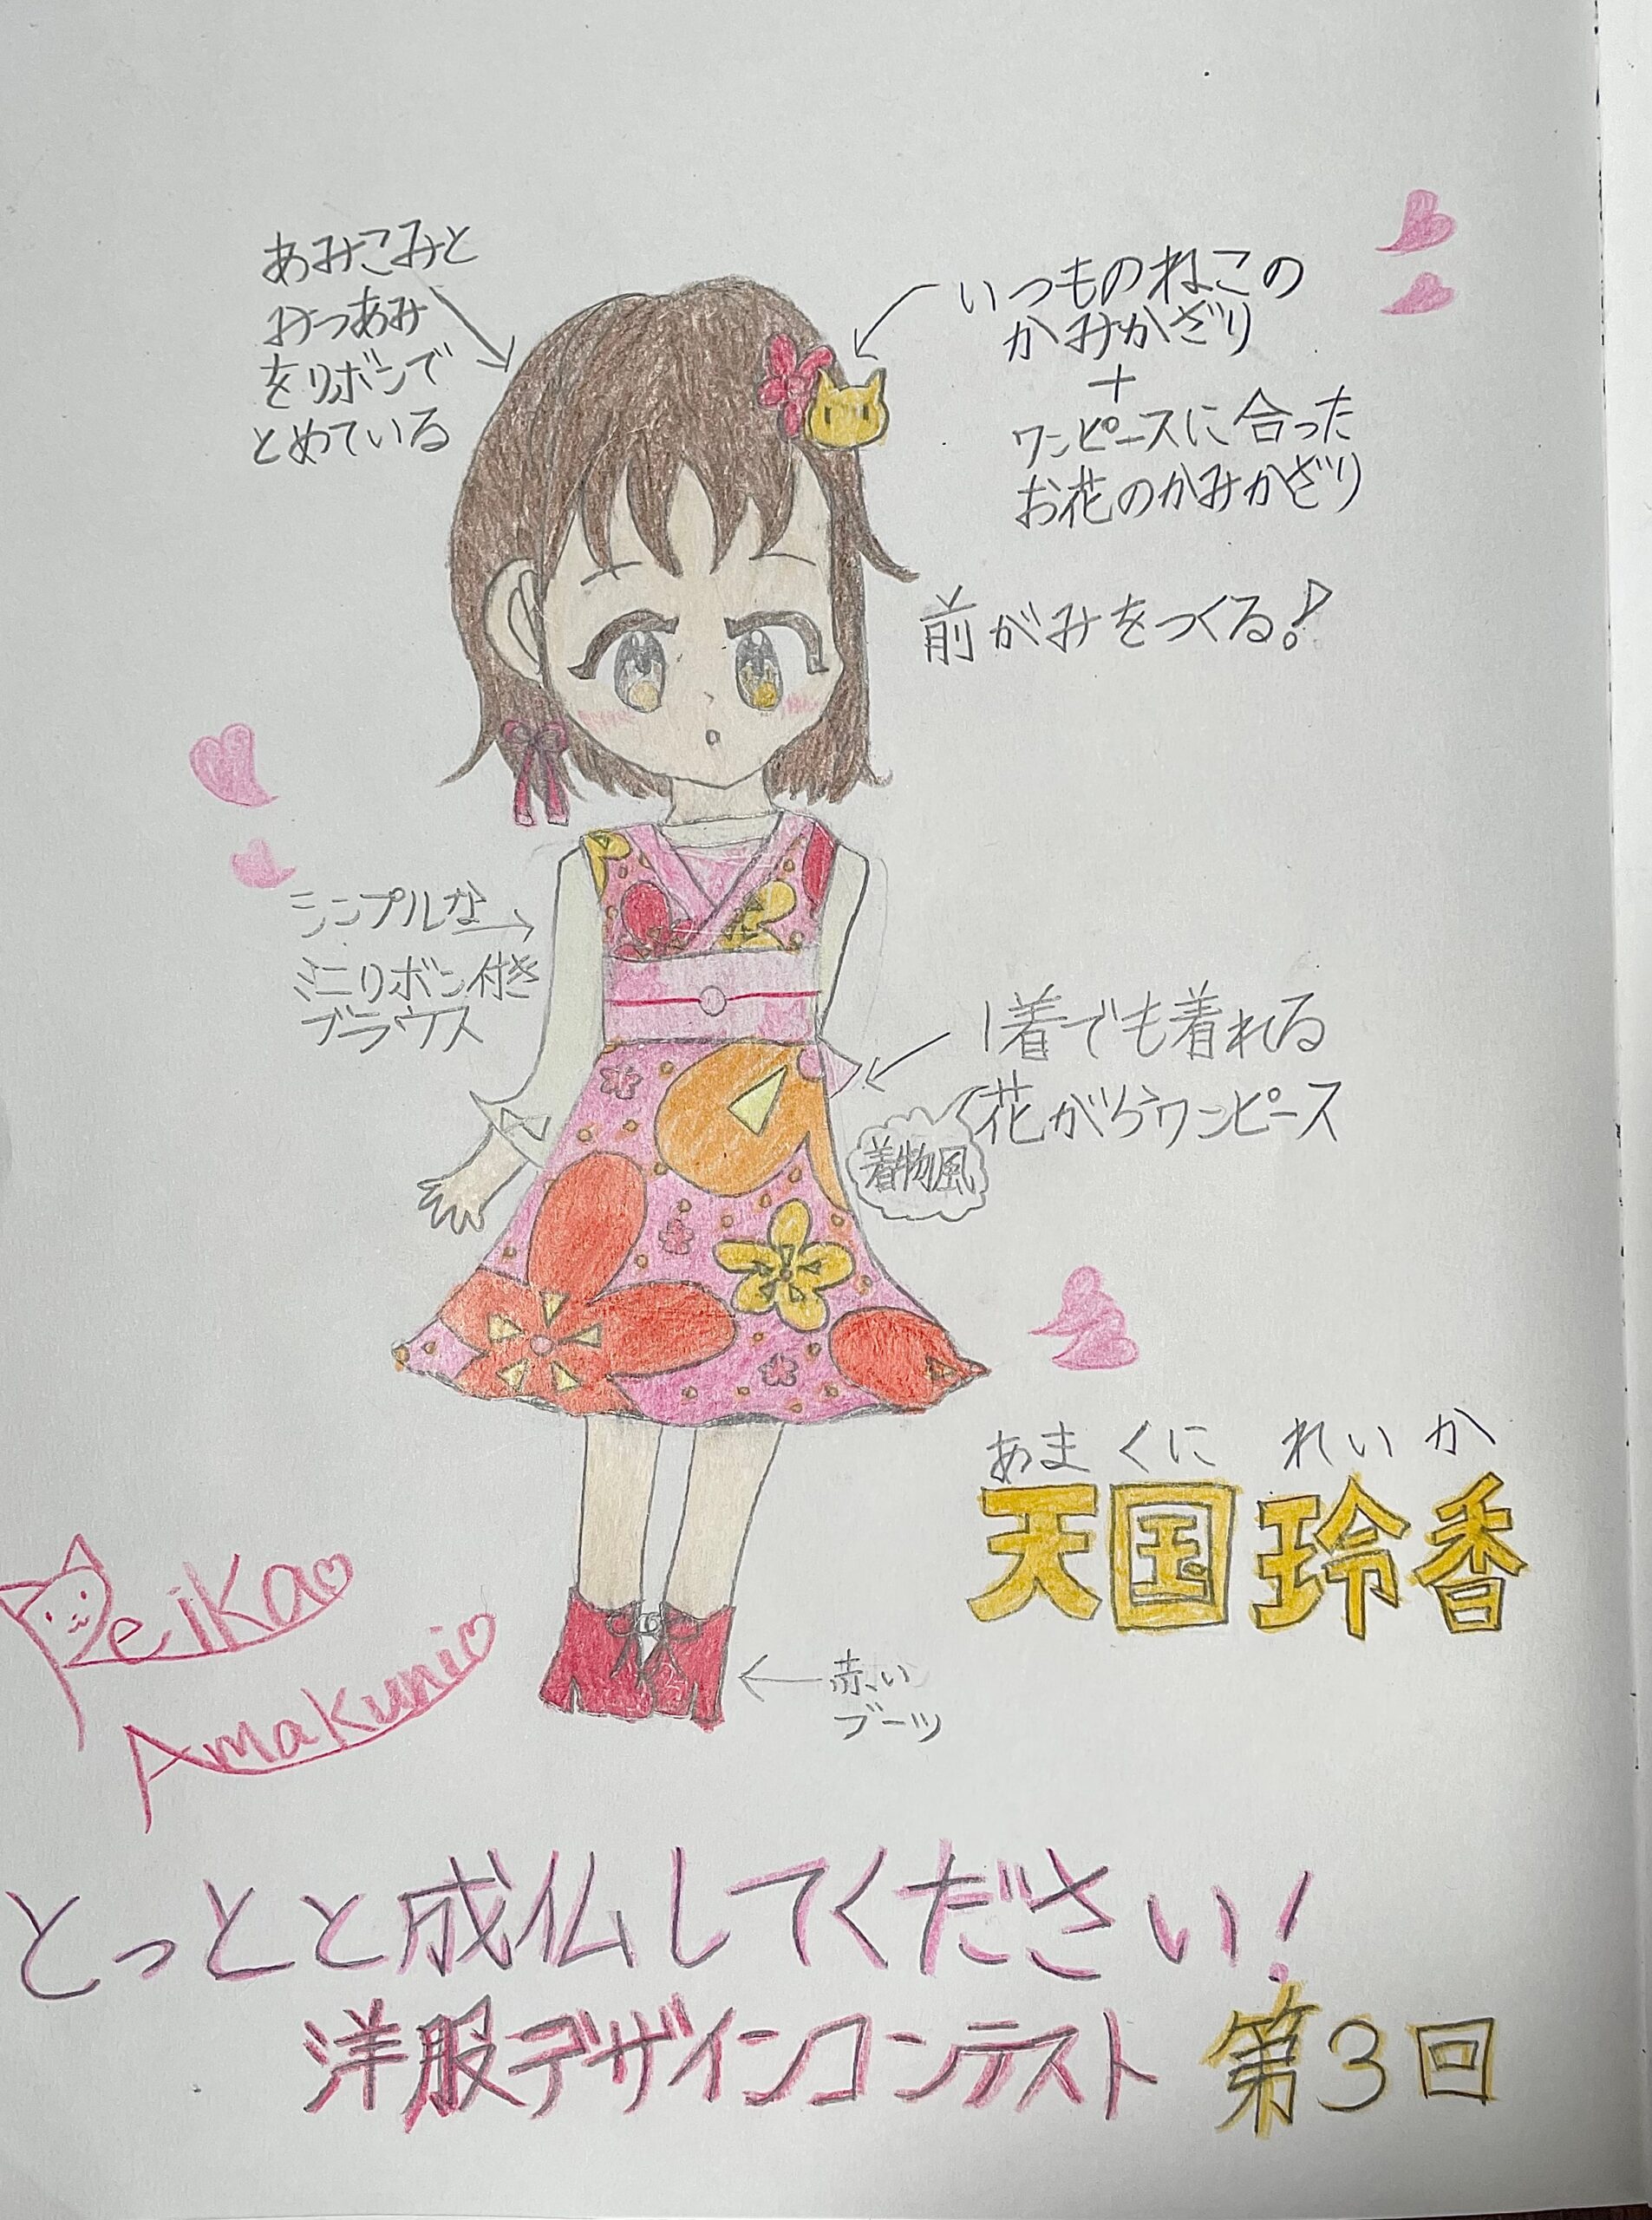 あみこみと
みつあみ
をリボンで
とめている
いつものねこの
かみかざり
+
ワンピースに合った
お花のかみかざり
前がみをつくる!
シンプルな
ミニリボン付き
ブラウス
1着でも着れる
花がらワンピース
着物風
あまくに れいか
天国玲香
Reika
Amakuni
赤い
ブーツ
とっとと成仏してください!
洋服デザインコンテスト 第3回